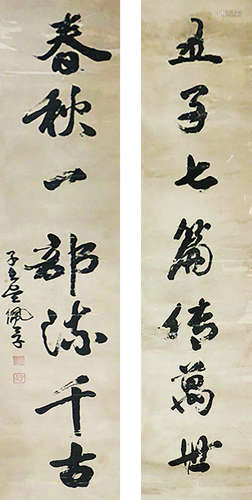 孟子七篇傳萬世
春秋一部流千古
子玉吳佩孚